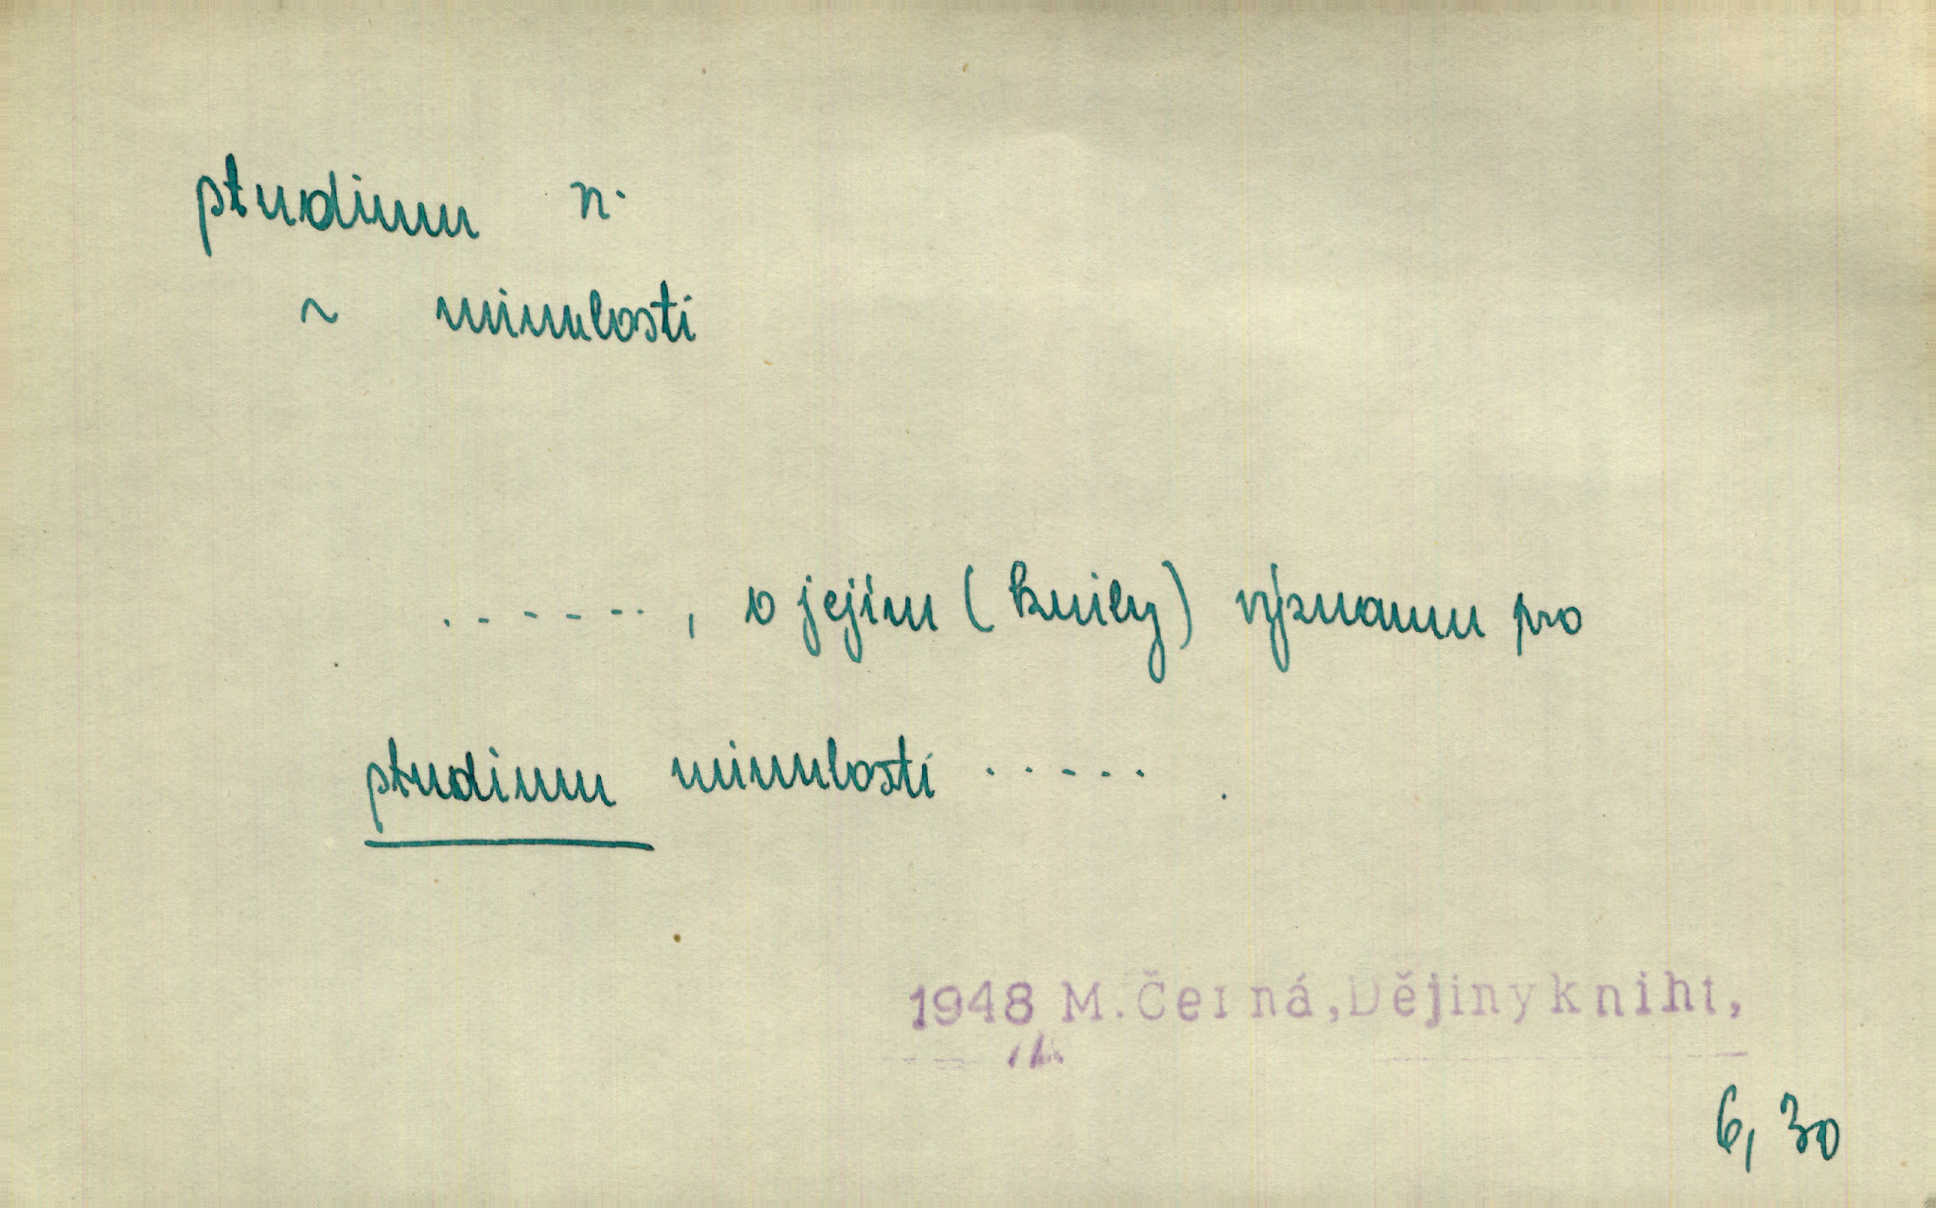 studium n.
~ minulosti
. - - - - - . . , o jejím (knihy) významu pro
studium minulosti . . - - .
1948 M. Černá, Dějiny kniht,
6, 30